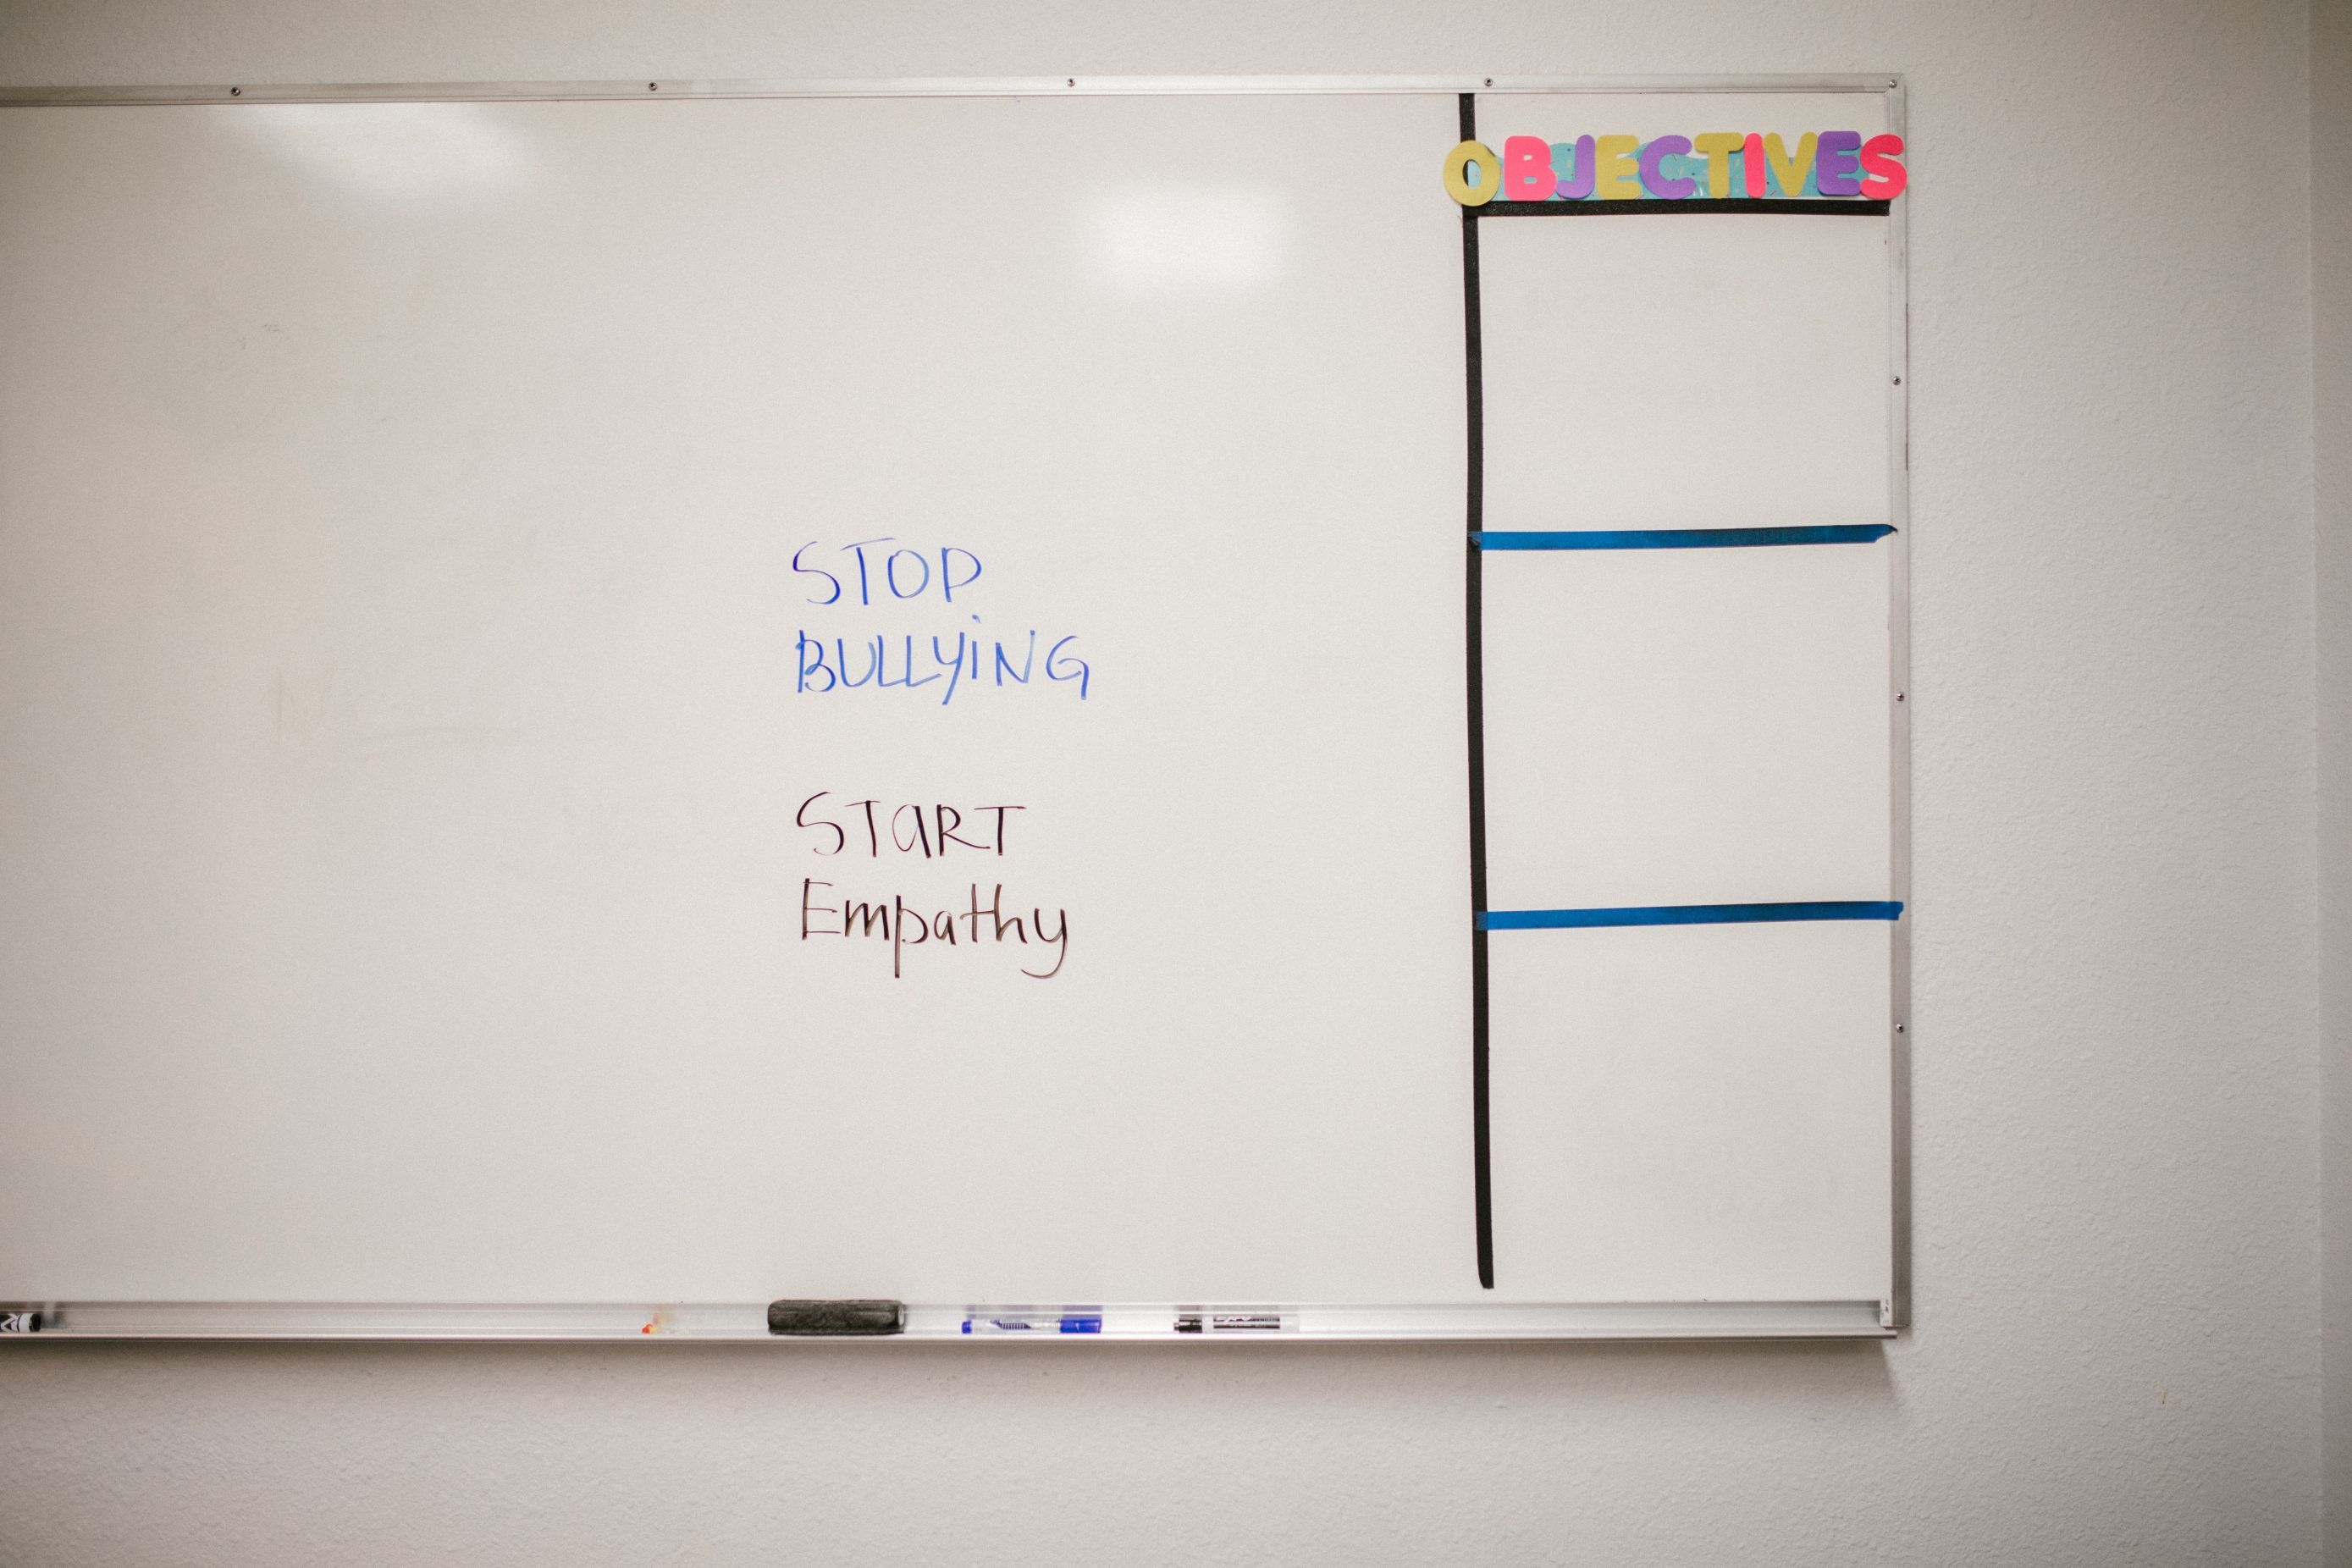 OBJECTIVES
STOP
BULLYiNG
START
Empathy